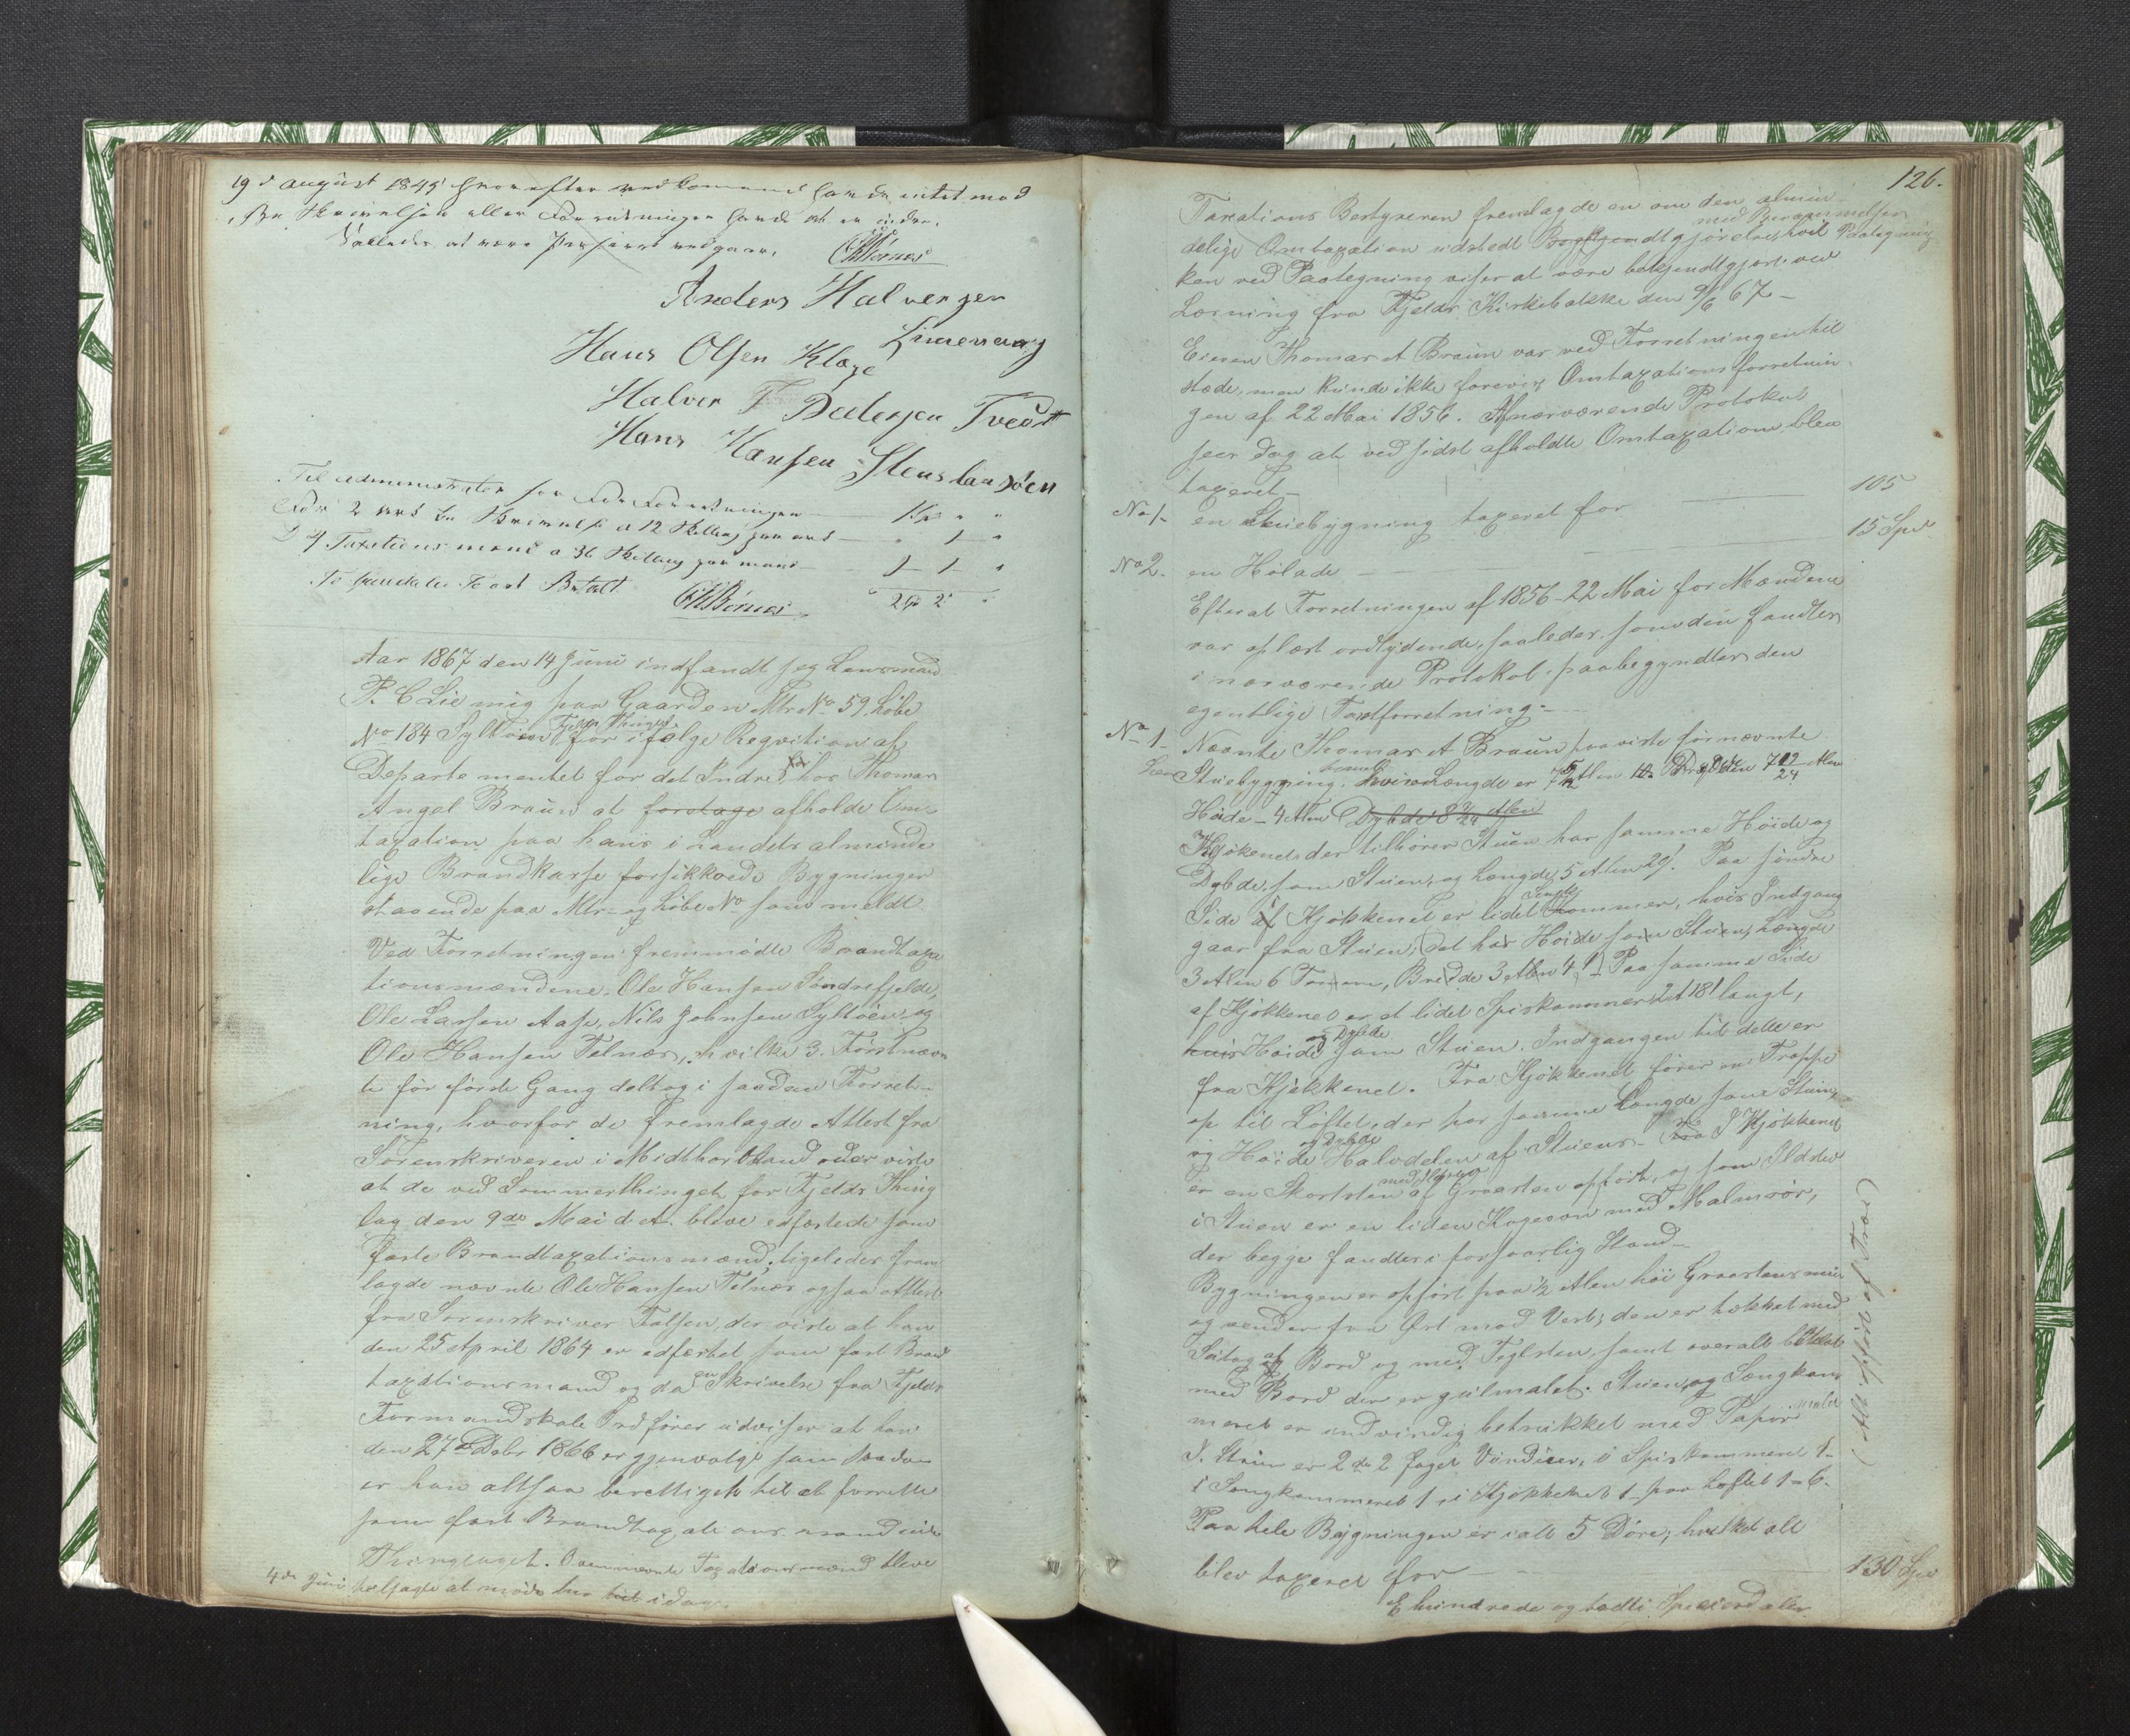 19 d august 1845 hvorefter vedkommend havde intet mod
Skrivelsen eller Forretningen havd at erindre.
Saaledes at være Passeret vedgaaer.
Anders Halversen
Hans Olsen Klæge
Halver Pedersen Tvedt
Hans Hansen
Til administrator for Forretningen
For 2 ard a 12 Skilling per ard
D 4 Taxations mend a 36 Skilling per mand 1 1
2 Sp 2
Aar 1867 den 14 Juni indfandt jeg Lensmand
P. C Lie mig paa Gaarden Mtr No 59, Løbe
No 184 Syltøen Fjelds Thingl. for ifølge Reqvition af
Departementet for det Indre hos Thomas
Angel Bruun at foretage afholde Om-
taxation paa hans i Landets alminde
lige Brandkasse forsikkrede Bygninger
staaende paa Mtr- og Løbe No som meldt
Ved Forretningen fremmødte Brandtaxa
tionsmændene. Ole Hansen Søndrefjelde,
Ole Larsen Aase, Nils Johnsen Syltøen, og
Ole Hansen Telnæs, hvilke 3. Førstnævn
te for første Gang deltog i saadan Forret-
ning, hvorfor de fremlagde Attest fra
Sorenskriveren i Midthordland der viste
at de ved Sommerthinget for Fjelds Thing
lag den 9de Mai d. A. bleve edfæstede som
faste Brandtaxationsmænd. ligeledes frem
lagde nævnte Ole Hansen Telnæs ogsaa Attest
fra Sorenskriver Falsen, der viste at han
den 25 April 1864 er edfæstet som fast Brand
taxationsmand og da en Skrivelse fra Fjelds
Formandskabs Ordfører udviser at han
den 27de Debr 1866 er gjenvalgt som saadan
er han altsaa berettiget til at forrette
som fast Brandtaxationsmand i
Thinglaget. Ovennævnte Taxationsmænd bleve
4de Juni tilsagte at møde her til i dag.
126.
Taxations Bestyreren fremlagde en om den almin-
delige Omtaxation udstedt Bekjendtgjørelse, med Berammelses Paategning hvil
ken ved Paategning viser at være bekjendtgjort ved
Læsning fra Fjelds Kirkebakke den 9/6 67 -
Eieren Thomas A Bruun var ved Forretningen til
stede, men kunde ikke forevise Omtaxationsforretnin
gen af 22 Mai 1856. Nærværende Protokol
seer dog at ved sidst afholdte Omtaxation blev
taxeret -
No 1- en Stuebygning taxeret for 105
No 2. en Hølade - 15 Spd
Efter at Forretningen af 1856-22 Mai for Mændene
var oplæst ordlydende, saaledes som den fandtes
i nærværende Protokol, paabegyndtes den
egentlige Taxtforretning. -
No 1 - Nævnte Thomas A Bruun paaviste førnævnte
Stuebygning, hvis Længde er Alen Alen
Høide - 4 Alen Dybde Alen
Kjøkenet der tilhører Stuen har samme Høide og
Dybde som Stuen, og Længde 5 Alen 20". Paa søndre
Side af Kjøkkenet er lidet Senge kammer, hvis Indgang
gaar fra Stuen, det har Høide som Stuen, Længde
3 Alen 6 Tommer, Bredde 3 Alen 4") Paa samme Side
af Kjøkkenet er et lidet Spiskammer 2 A 18" langt,
hvis Høide og Dybde som Stuen. Indgangen til dette er
fra Kjøkkenet. Fra Kjøkkenet fører en Trappe
op til Løftet, der har samme Længde som Stuen,
og Høide og Dybde Halvdelen af Stuens - Fra I Kjøkkenet
er en Skorsten med af Graasten opført, og som Ildsted
i Stuen er en liden Kogeovn med Malmrør,
der begge fandtes i forsvarlig Stand -
Bygningen er opført paa 1/2 Alen høi Graastensmur
og vender fra Øst mod Vest, den er tækket med
Sutag af Bord og med Teglsten, samt overalt beklædt
med Bord der er gulmalet. Stuen og Sengkam
meret er indvindig betrukket med Papir malet
I Stuen er 2 de 2 Fags Vinduer, i Spiskammeret 1-
i Sengkammeret 1, i Kjøkkenet 1 - paa Loftet 1 - 6.
Paa hele Bygningen er i alt 5 Døre, hvilket alt
blev taxeret for - 130 Spd
Ethundrede og tredti Speciedaler
(Alt opført af Træ)